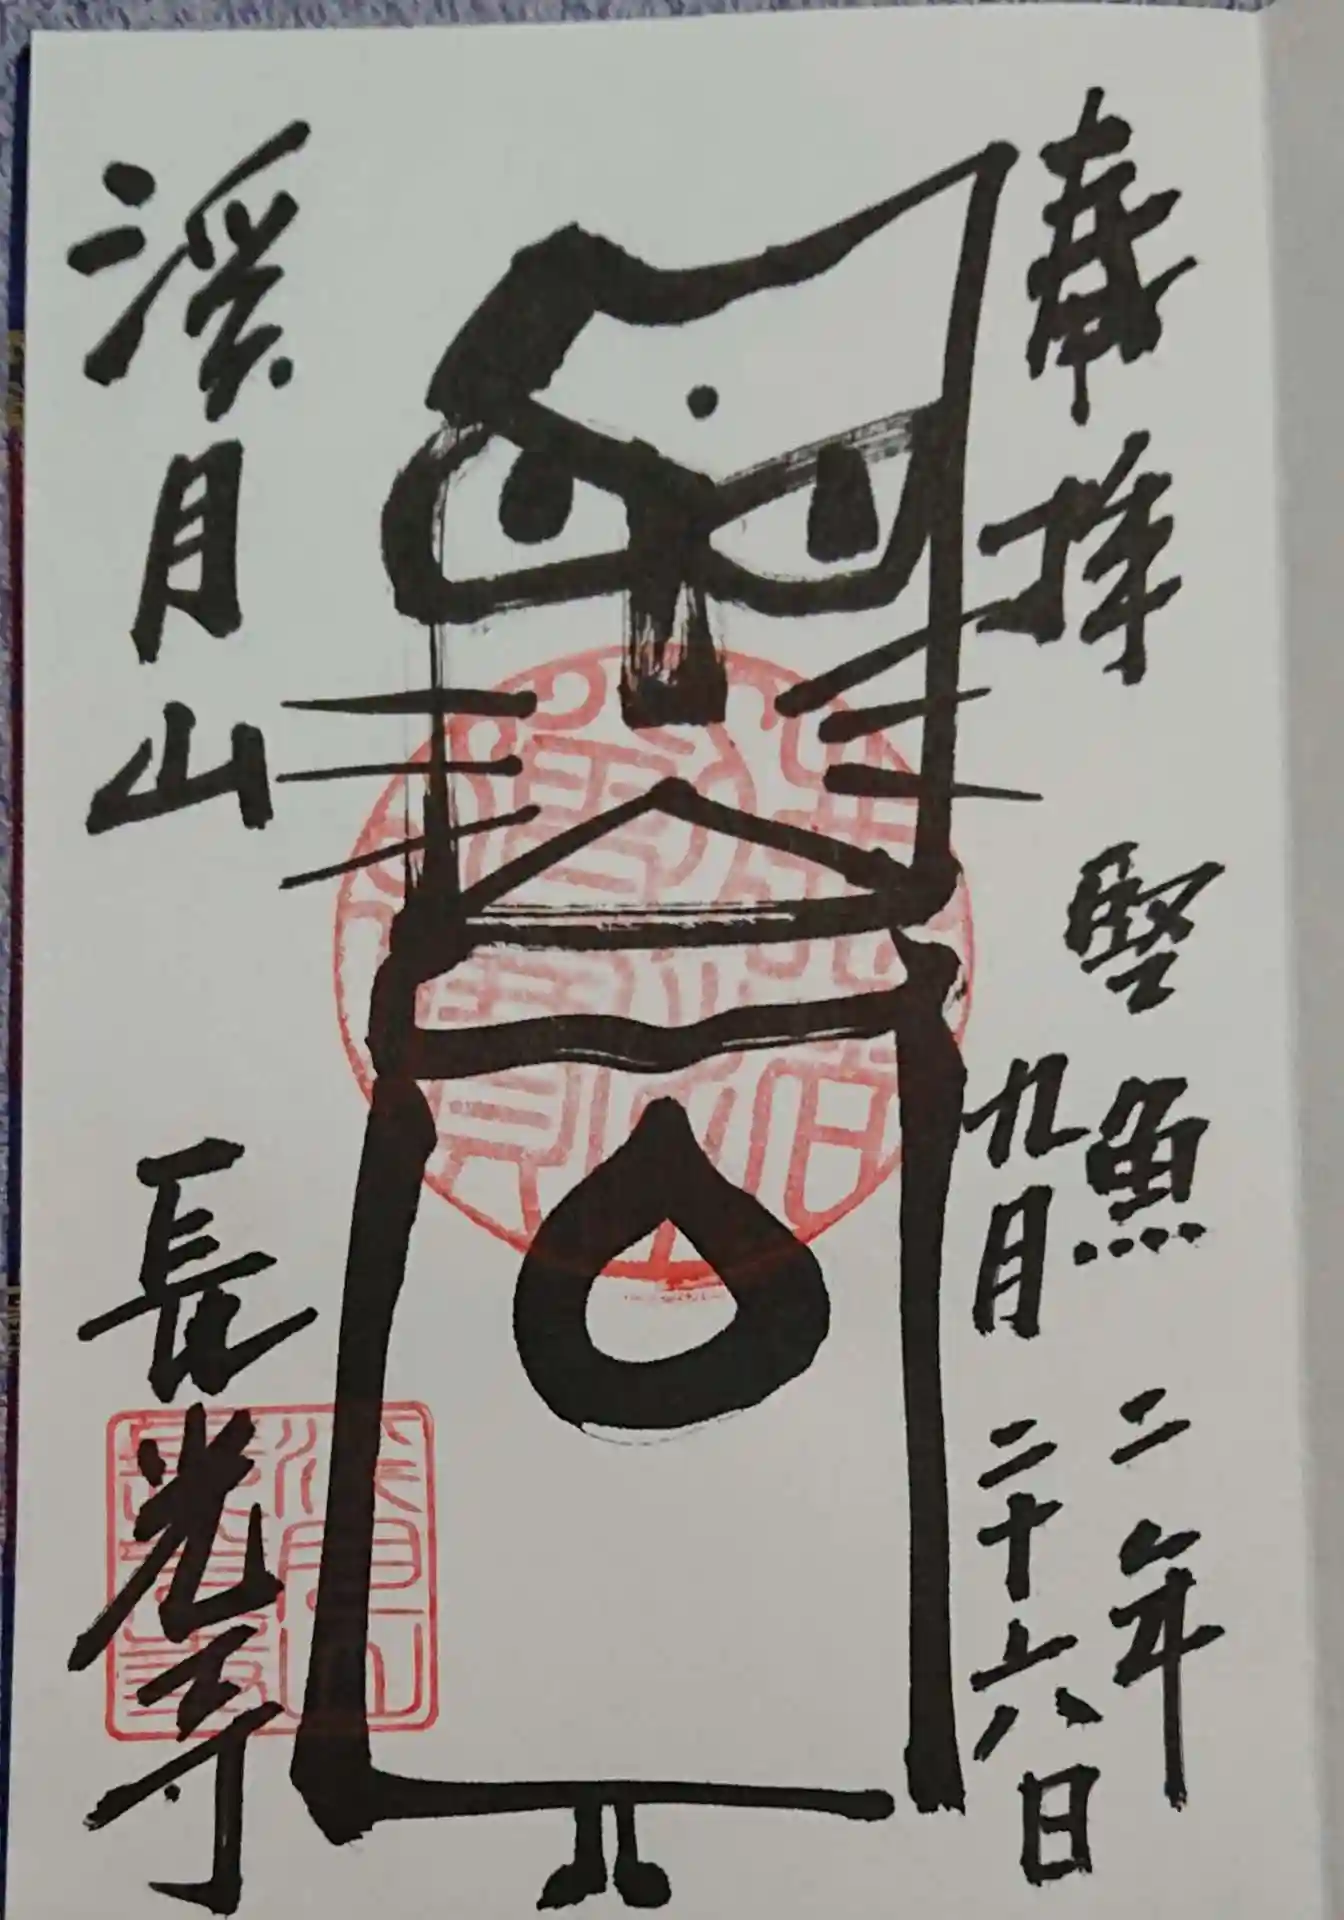 奉拝
堅魚二年
九月二十六日
溪月山
長光寺